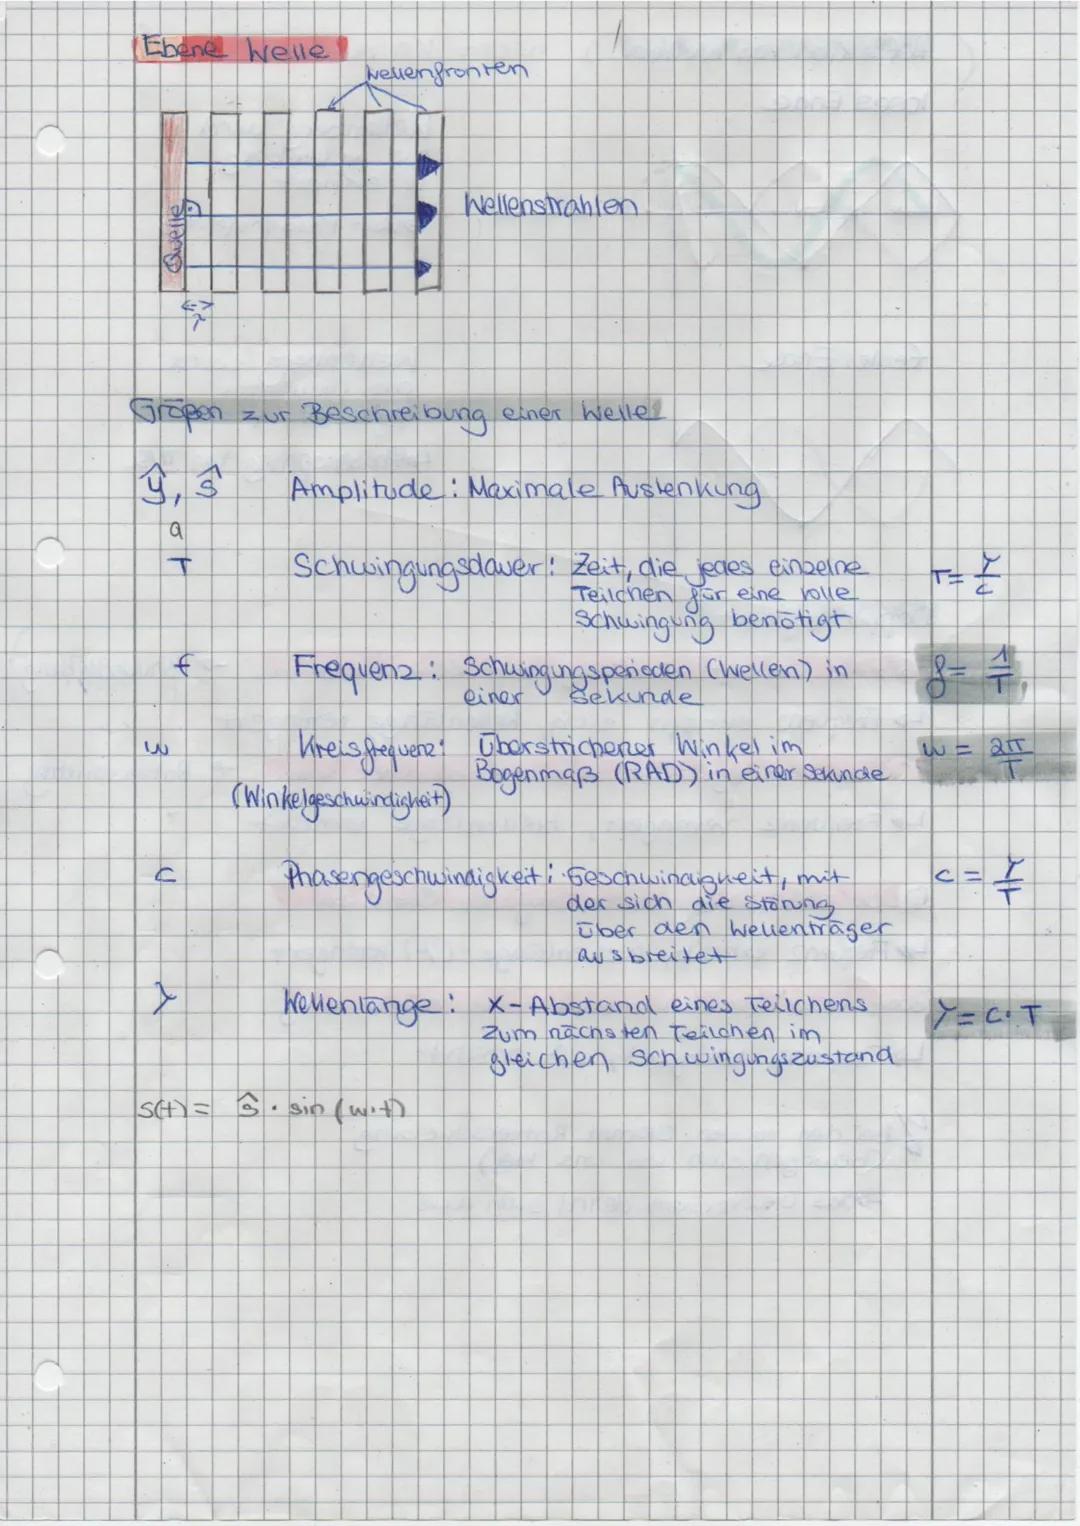 Ebene Welle
Wellenfronten
Quelle
Wellenstrahlen
λ
Größen zur Beschreibung einer Welle
ŷ, ŝ Amplitude: Maximale Auslenkung
a
T Schwingungsdauer: Zeit, die jedes einzelne T = λ/c
Teilchen für eine volle
Schwingung benötigt
f Frequenz: Schwingungsperioden (Wellen) in f = 1/T
einer Sekunde
w Kreisfrequenz: Überstrichener Winkel im w = 2π/T
Bogenmaß (RAD) in einer Sekunde
(Winkelgeschwindigkeit)
c Phasengeschwindigkeit: Geschwindigkeit, mit c = λ/T
der sich die Störung
über den Wellenträger
ausbreitet
λ Wellenlänge: X-Abstand eines Teilchens λ = c · T
zum nächsten Teilchen im
gleichen Schwingungszustand
s(t) = ŝ · sin (w·t)